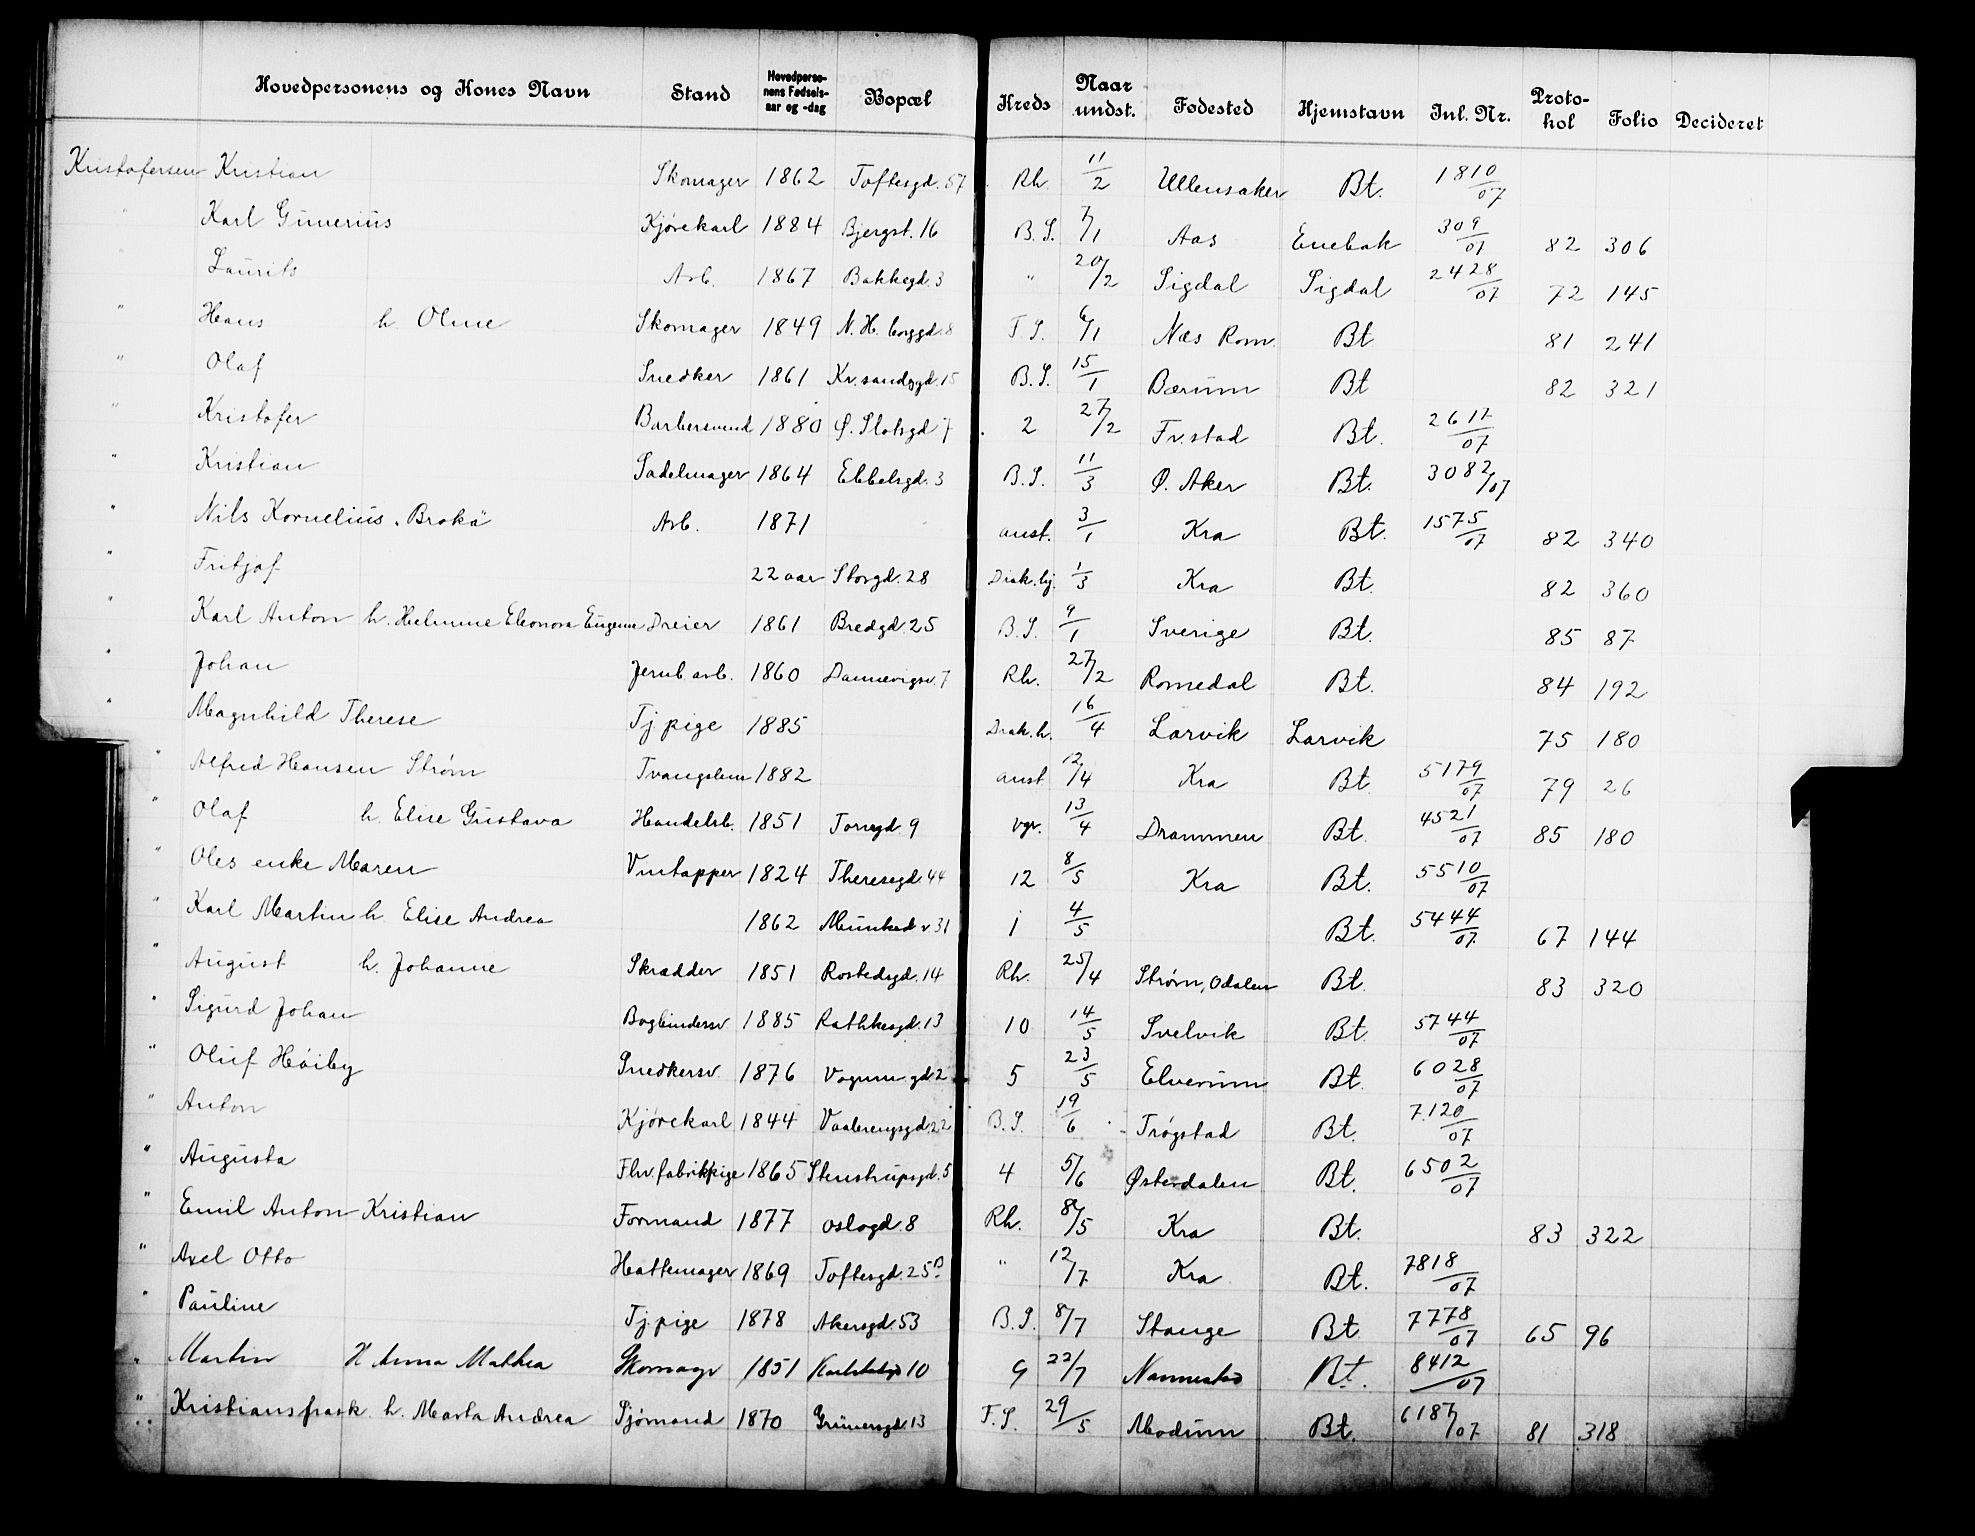 Hovedpersonens og Kones Navn Stand Hovedperso-nens Fødsels-aar og -dag Bopæl Kreds Naar undst. Fødested Hjemstavn Inl. Nr. Proto-kol Folio Decideret
Kristofersen Kristian Skomager 1862 Toftesgd. 57 Rh. 11/2 Ullensaker Bt. 1810/07
" Karl Gunerius Kjørekarl 1884 Bjergst. 16 B.S. 7/1 Aas Enebak 309/07 82 306
Laurits Arb. 1867 Bakkegd. 3 " 20/2 Sigdal Sigdal 2428/07 72 145
" Hans h. Oline Skomager 1849 N. H. borggd. 8 F S. 6/1 Næs Rom. Bt 81 241
" Olaf Snedker 1861 Kr.sandsgd. 15 B.S. 15/1 Bærum Bt 82 321
" Kristofer Barbersvend 1880 Ø. Slotsgd 7 2 27/2 Fr.stad Bt. 2617/07
" Kristian Sadelmager 1864 Ebbelsgd. 3 B.S. 11/3 Ø. Aker Bt. 3082/07
" Nils Kornelius. Brokä Arb. 1871 anst. 3/1 Kra Bt. 1575/07 82 340
" Fritjof 22 aar Storgd. 28 Diak.hj. 1/3 Kra Bt. 82 360
" Karl Anton h. Helmine Eleonora Eugenie Dreier 1861 Bredgd. 25 B.S. 9/1 Sverige Bt. 85 87
" Johan Jernb arb. 1860 Dannevigsv. 7 Rh. 27/2 Romedal Bt. 84 192
" Magnhild Therese Tj pige 1885 Diak.h. 16/4 Larvik Larvik 75 180
" Alfred Hansen Strøm Tvangslem 1882 anst 12/4 Kra Bt 5179/07 79 26
" Olaf h. Elise Gustava Handelsb. 1851 Torvgd. 9 vgr. 13/4 Drammen Bt. 4521/07 85 180
" Oles enke Maren Vintapper 1824 Theresegd. 44 12 8/5 Kra Bt. 5510/07
" Karl Martin h. Elise Andrea 1862 Munked v 31 1 4/5 Bt. 5444/07 67 144
" August h. Johanne Skrædder 1851 Rostedsgd. 14 Rh. 25/4 Strøm, Odalen Bt. 83 320
" Sigurd Johan Bogbindersv 1885 Rathkesgd. 13 10 14/5 Svelvik Bt. 5744/07
" Oluf Høiby Snedkersv. 1876 Vognm gd 2 5 23/5 Elverum Bt. 6028/07
" Anton Kjørekarl 1844 Vaalerengsgd. 22 B.S. 19/6 Trøgstad Bt. 7120/07
" Augusta Fhv. fabrikpige 1865 Stenstrupsgd. 5 4 5/6 Østerdalen Bt. 6502/07
" Emil Anton Kristian Formand 1877 Oslogd. 8 Rh. /5 Kra Bt. 83 322
" Axel Otto Hattemager 1869 Toftesgd. 25 B " 12/7 Kra Bt. 7818/07
" Pauline Tj. pige 1878 Akersgd. 53 B.S. 8/7 Stange Bt. 7778/07 65 96
" Martin H Anna Mathea Skomagr 1851 10 9 22/7 Nannestad Bt. 8412/07
" Kristiansfrask h. Marta Andrea Sjømand 1870 Grünersgd. 13 F.S. 29/5 Modum Bt. 6187/07 81 318